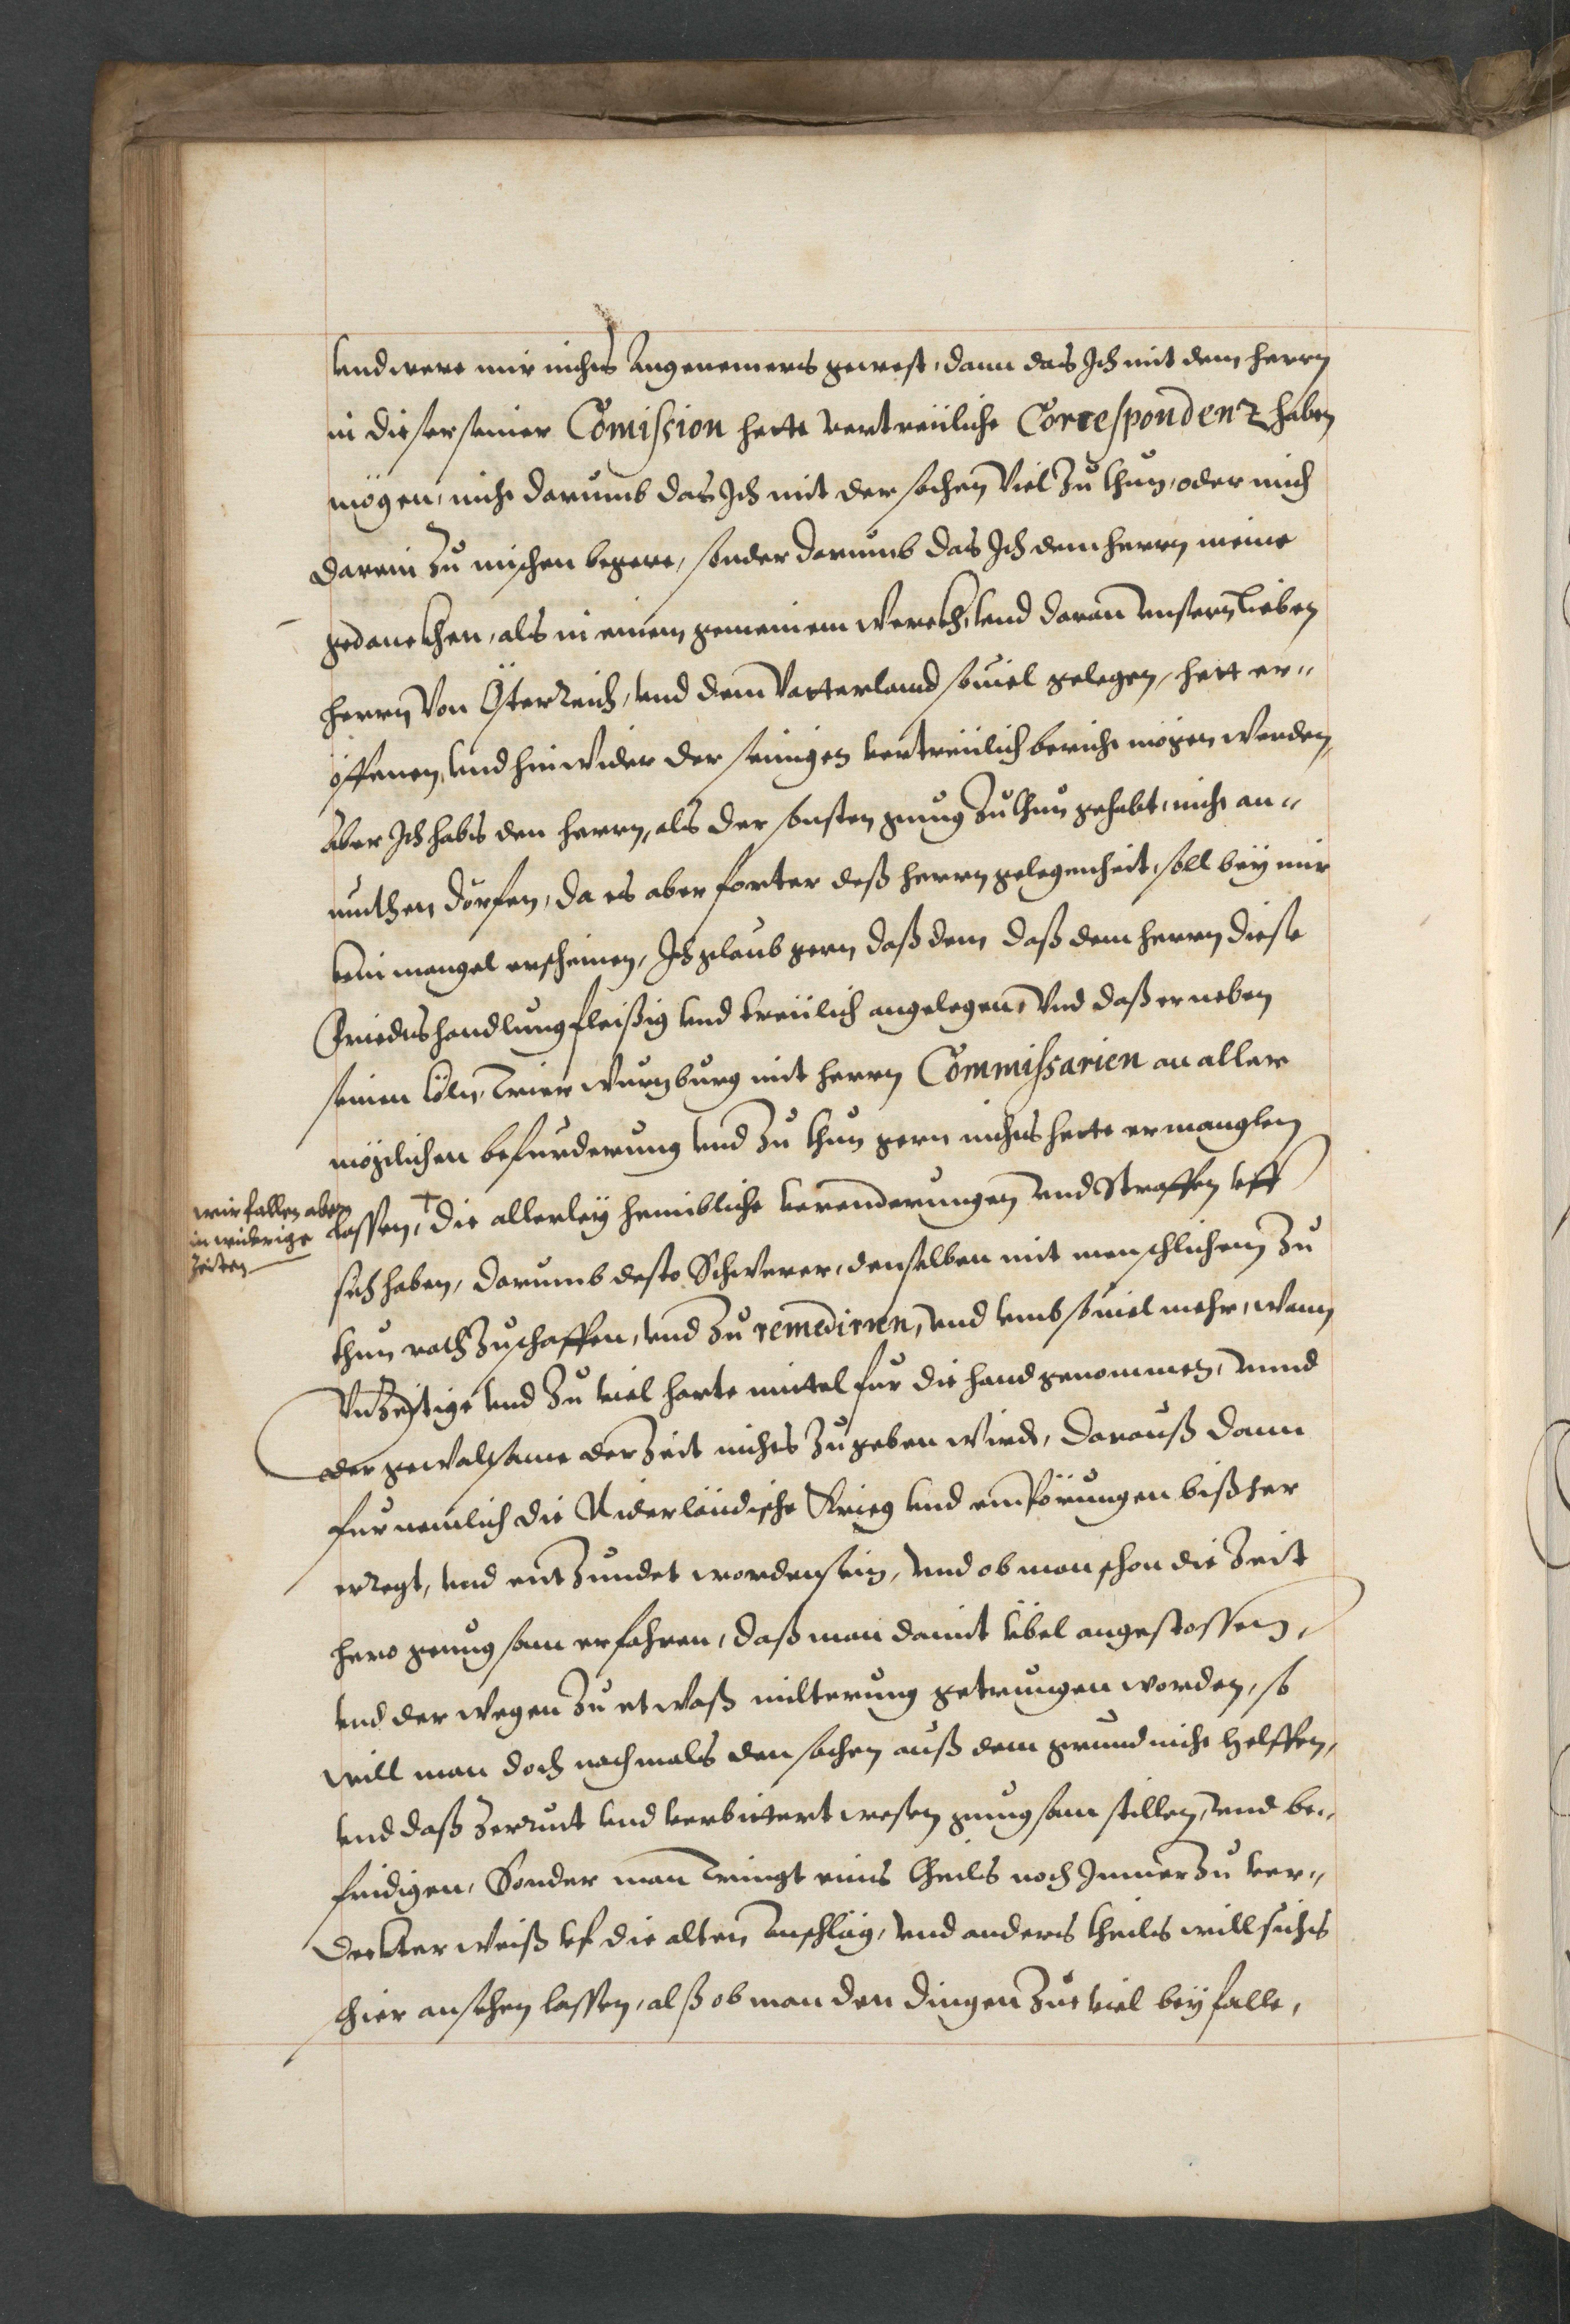 vnd were mir nichts Angenemers gewest, dann das Jch mit dem herrn
in dieser seiner Comission hette vertreuliche Correspondentz haben
mögen, nicht darumb das Jch mit der sachen Viel Zu thun, oder mich
darein Zu mischen begere, sonder darumb das Jch dem herrn meine
gedanckhen, als in einem gemeinem Werckh, vnd daran vnsern Lieben
herrn Von Österreich, vnd dem Vatterland souiel gelegen, hett er-
öffenen, vnd hinwider der seinigen vertreulich bericht mögen werden,
Aber Jch habs den herrn, als der sonsten gnug Zu thun gehabt, nicht an-
muthen dörfen, da es aber forter deß herrn gelegenheit, soll bey mir
kein mangel erscheinen, Jch glaub gern daß dem daß dem herrn diese
Friedtshandlung fleißig vnd treulich angelegen, Vnd daß er neben
seinen Cöln, Trier Wurzburg mit herrn Commissarien an aller
möglichen befurderung vnd Zu thun gern nichts hette ermanglen
lassen, † die allerley heimbliche verenderungen vnd Straffen vff
wir fallen aber
in widrige
Zeiten
sich haben, darumb desto Schwerer, denselben mit menschlichem Zu
thun rath Zuschaffen, vnd Zu remediren, vnd vmb souiel mehr, wann
Vnzeitige vnd Zu viel harte mittel fur die hand genommen, vnnd
der gewalsame der Zeit nichts Zugeben wirdt, darauß dann
furnemlich die Niderländische Krieg vnd empörungen bißher
erregt, vnd entzundet worden sein, vnd ob man schon die Zeit
hero genugsam erfahren, daß man damit übel angestossen,
vnd derwegen Zu etwaß milterung getrungen worden, so
will man doch nachmals den sachen auß dem grund nicht helffen,
vnd daß Zerrut vnd verbittert wesen gnugsam stillen, vnd be-
fridigen, Sonder man Tringt eins theils noch Jmmer Zu ver-
deckter weiß vf die alten Anschläg, vnd anders theils will sichs
schier ansehen lassen, alß ob man den dingen Zue viel bey falle,